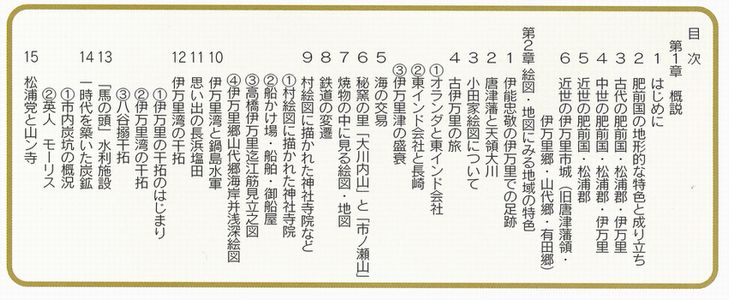 目 次
第1章 概説
1 はじめに
2 肥前国の地形的な特色と成り立ち
3 古代の肥前国・松浦郡・伊万里
4 中世の肥前国・松浦郡・伊万里
5 近世の肥前国・松浦郡
6 近世の伊万里市域（旧唐津藩領・
伊万里郷・山代郷・有田郷）
第2章 絵図・地図にみる地域の特色
1 伊能忠敬の伊万里での足跡
2 唐津藩と天領大川
3 小田家絵図について
4 古伊万里の旅
①オランダと東インド会社
②東インド会社と長崎
③伊万里津の盛衰
5 海の交易
6 秘窯の里「大川内山」と「市ノ瀬山」
7 焼物の中に見る絵図・地図
8 鉄道の変遷
9 村絵図に描かれた神社寺院など
①村絵図に描かれた神社寺院
②船かけ場・船舶・御船屋
③高橋伊万里迄江筋見立之図
④伊万里郷山代郷海岸并浅深絵図
10 伊万里湾と鍋島水軍
11 思い出の長浜塩田
12 伊万里湾の干拓
①伊万里の干拓のはじまり
②伊万里湾の干拓
③八谷搦干拓
13 「馬の頭」水利施設
14 一時代を築いた炭鉱
①市内炭坑の概況
②英人 モーリス
15 松浦党と山ン寺